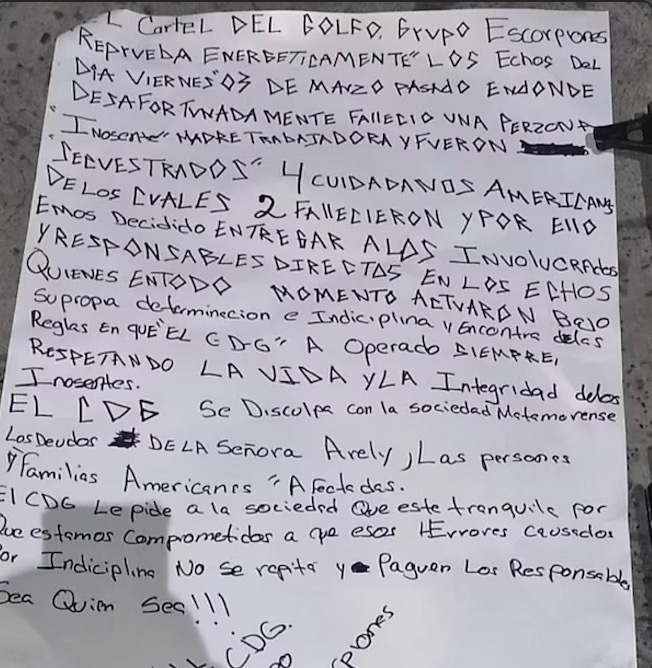 EL Cartel DEL GOLFO. Grupo Escorpiones
REPRUEBA ENERGETICAMENTE" LOS Echos DEL
DIA VIERNES" 03 DE MARZO PASADO ENDONDE
DESAFORTUNADAMENTE FALLECIO UNA PERZONA
"INosente" MADRE TRABAJADORA Y FUERON
"SECUESTRADOS" 4 CUIDADANOS AMERICANS
DE LOS CUALES 2 FAllECIERON Y POR Ello
Emos Decidido ENTREGAR A LOS INVOLUCRAdos
Y RESPONSABLES DIRECTOS EN LOS ECHOS
QUIENES ENTODO MOMENTO ACTUARON BAJO
su propa determinecion e Indiciplina y Encontra delas
Reglas En que "EL CDG" A Operado SIEMPRE,
RESPETANDO LA VIDA Y LA Integridad delos
Inosentes.
EL CDG Se Disculpa con la sociedad Matamorense
Los Deudos DE LA Señora Arely, Las personas
Y familias Americanas "Afectadas.
El CDG Le pide a la sociedad Que este tranquila por
Que estamos Comprometidos a que esos Errores causados
Por Indiciplina No se repita y Paguen Los Responsables
Sea Quien Sea!!!
CDG.